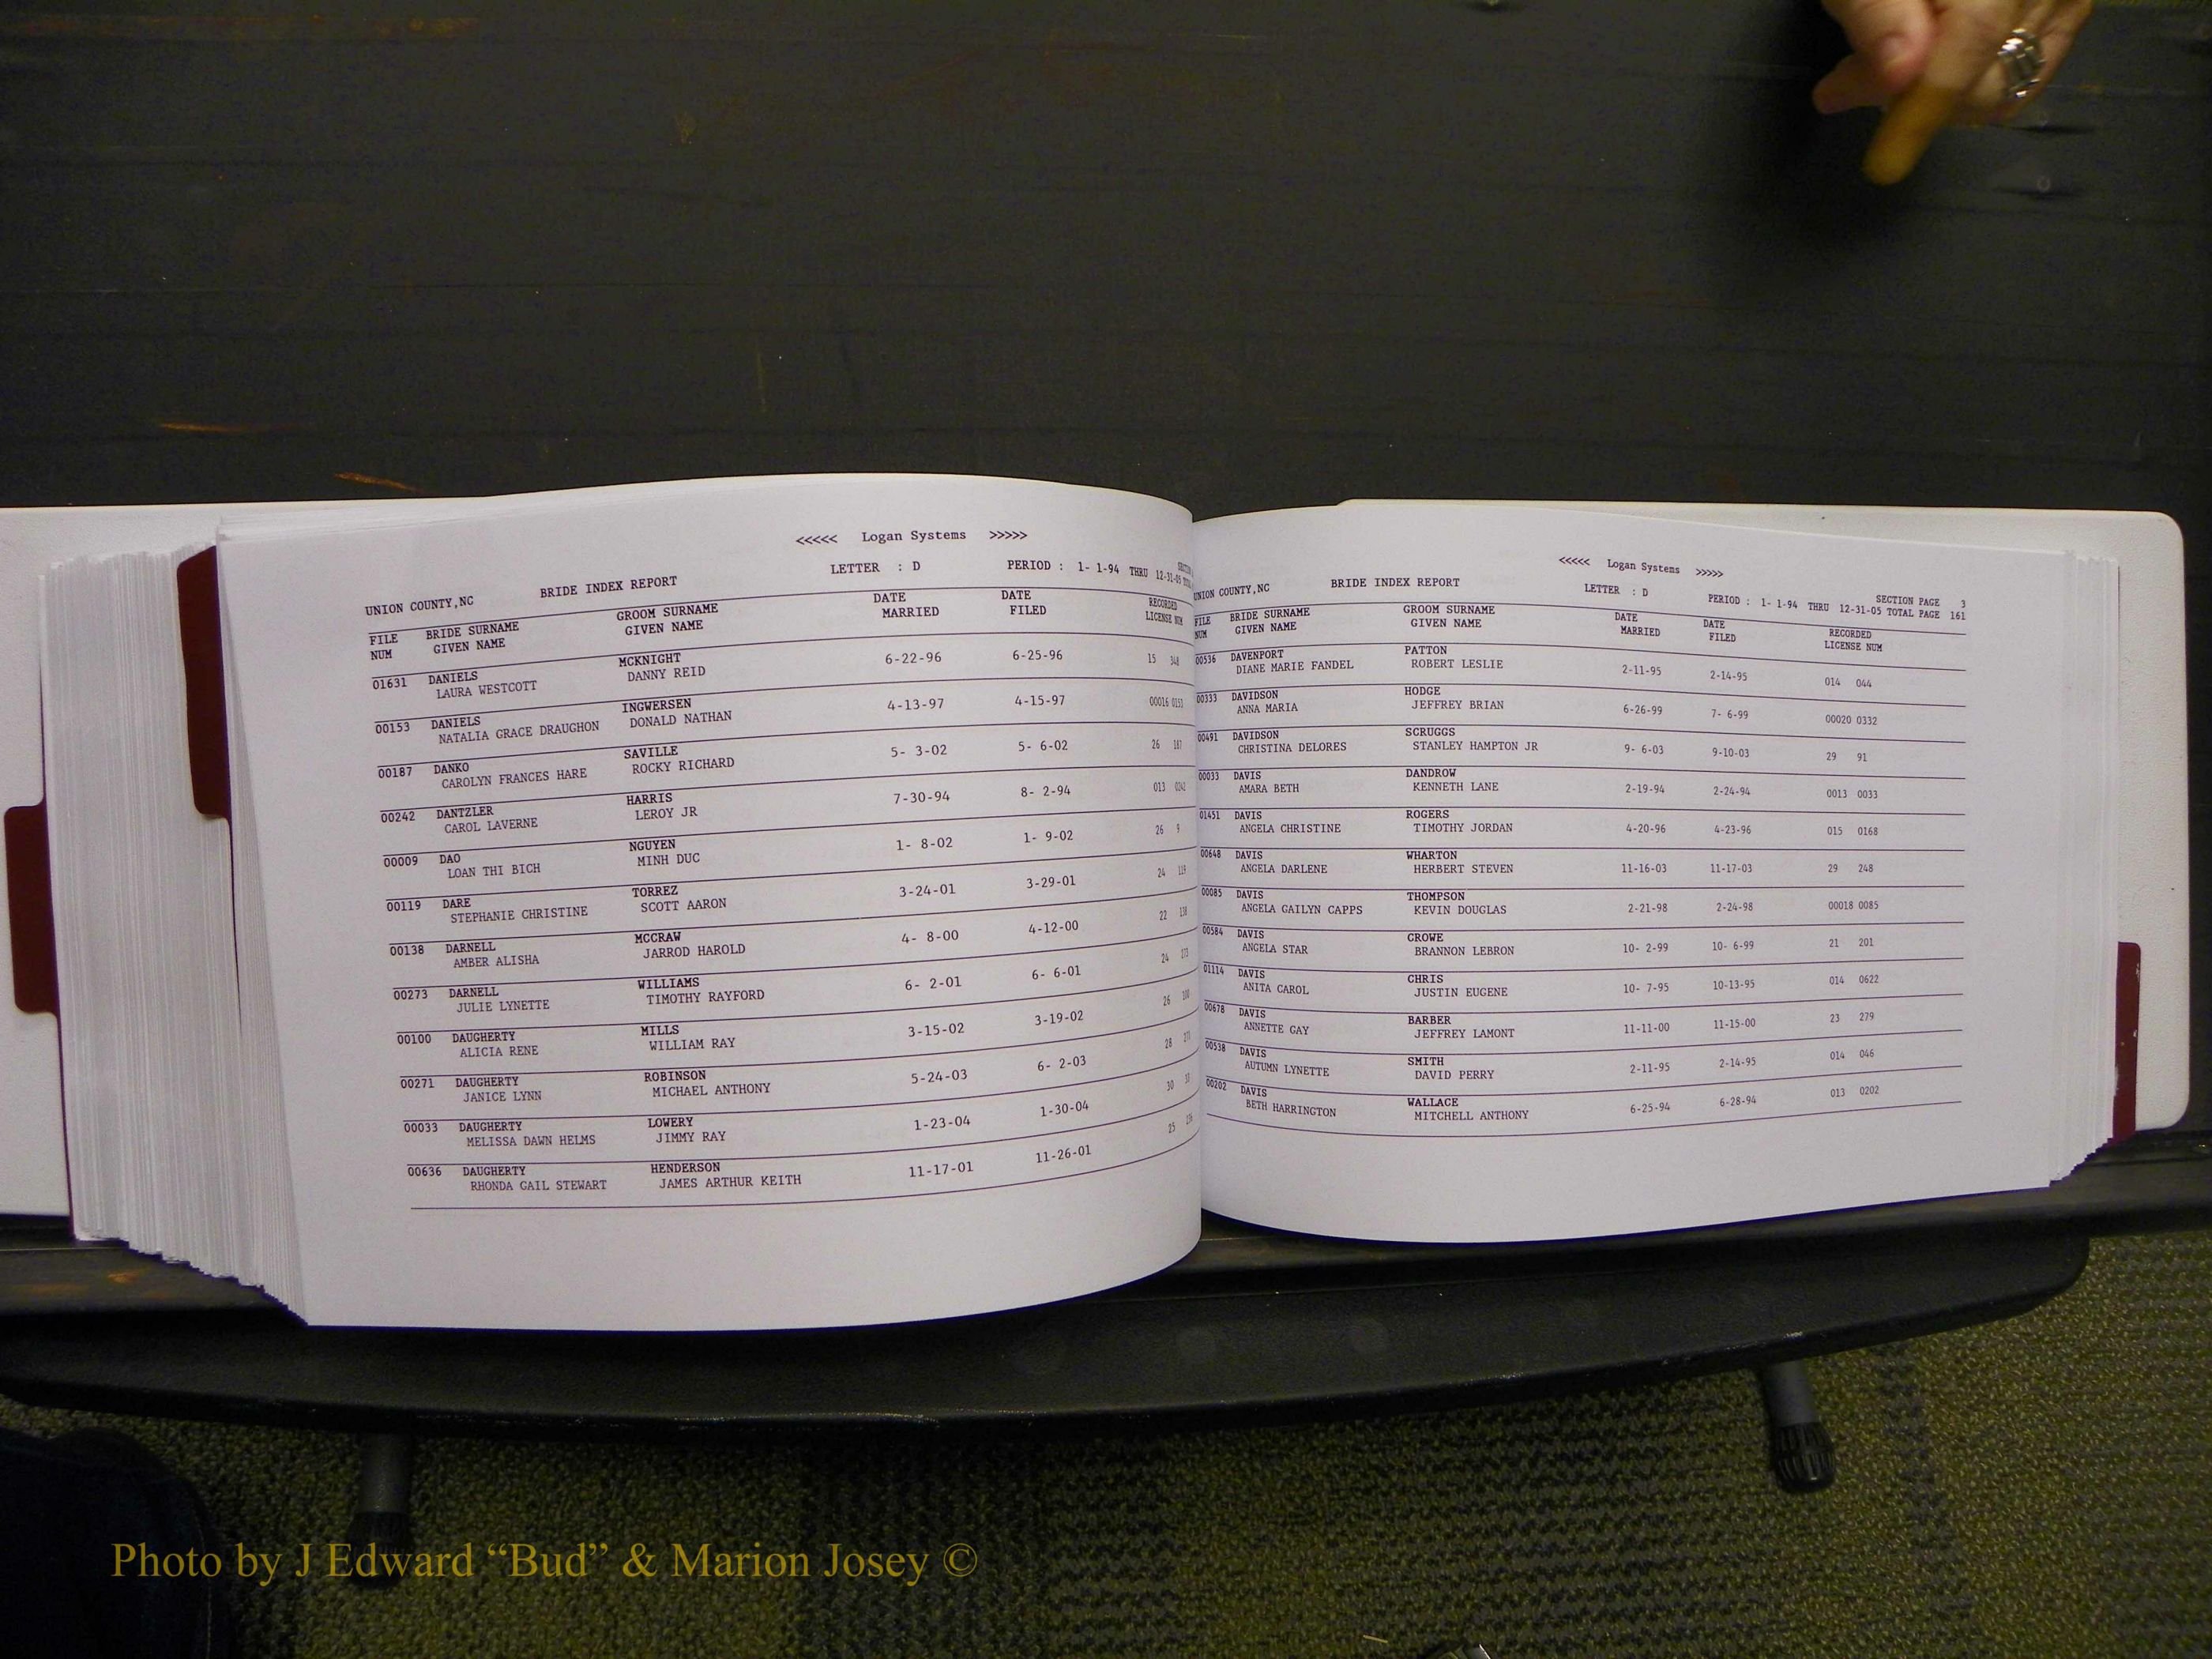 <<<<< Logan Systems >>>>>
UNION COUNTY,NC BRIDE INDEX REPORT LETTER : D PERIOD : 1- 1-94 THRU 12-31-05
FILE NUM BRIDE SURNAME GIVEN NAME GROOM SURNAME GIVEN NAME DATE MARRIED DATE FILED RECORDED LICENSE NUM
01631 DANIELS MCKNIGHT 6-22-96 6-25-96 15 348
LAURA WESTCOTT DANNY REID
00153 DANIELS INGWERSEN 4-13-97 4-15-97 00016 0153
NATALIA GRACE DRAUGHON DONALD NATHAN
00187 DANKO SAVILLE 5- 3-02 5- 6-02 26 187
CAROLYN FRANCES HARE ROCKY RICHARD
00242 DANTZLER HARRIS 7-30-94 8- 2-94 013 0242
CAROL LAVERNE LEROY JR
00009 DAO NGUYEN 1- 8-02 1- 9-02 26 9
LOAN THI BICH MINH DUC
00119 DARE TORREZ 3-24-01 3-29-01 24 119
STEPHANIE CHRISTINE SCOTT AARON
00138 DARNELL MCCRAW 4- 8-00 4-12-00 22 138
AMBER ALISHA JARROD HAROLD
00273 DARNELL WILLIAMS 6- 2-01 6- 6-01 24 273
JULIE LYNETTE TIMOTHY RAYFORD
00100 DAUGHERTY MILLS 3-15-02 3-19-02 26 100
ALICIA RENE WILLIAM RAY
00271 DAUGHERTY ROBINSON 5-24-03 6- 2-03 28 271
JANICE LYNN MICHAEL ANTHONY
00033 DAUGHERTY LOWERY 1-23-04 1-30-04 30 33
MELISSA DAWN HELMS JIMMY RAY
00636 DAUGHERTY HENDERSON 11-17-01 11-26-01 25
RHONDA GAIL STEWART JAMES ARTHUR KEITH
<<<<< Logan Systems >>>>>
SECTION PAGE 3
UNION COUNTY,NC BRIDE INDEX REPORT LETTER : D PERIOD : 1- 1-94 THRU 12-31-05 TOTAL PAGE 161
FILE NUM BRIDE SURNAME GIVEN NAME GROOM SURNAME GIVEN NAME DATE MARRIED DATE FILED RECORDED LICENSE NUM
00536 DAVENPORT PATTON 2-11-95 2-14-95 014 044
DIANE MARIE FANDEL ROBERT LESLIE
00333 DAVIDSON HODGE 6-26-99 7- 6-99 00020 0332
ANNA MARIA JEFFREY BRIAN
00491 DAVIDSON SCRUGGS 9- 6-03 9-10-03 29 91
CHRISTINA DELORES STANLEY HAMPTON JR
00033 DAVIS DANDROW 2-19-94 2-24-94 0013 0033
AMARA BETH KENNETH LANE
01451 DAVIS ROGERS 4-20-96 4-23-96 015 0168
ANGELA CHRISTINE TIMOTHY JORDAN
00648 DAVIS WHARTON 11-16-03 11-17-03 29 248
ANGELA DARLENE HERBERT STEVEN
00085 DAVIS THOMPSON 2-21-98 2-24-98 00018 0085
ANGELA GAILYN CAPPS KEVIN DOUGLAS
00584 DAVIS CROWE 10- 2-99 10- 6-99 21 201
ANGELA STAR BRANNON LEBRON
01114 DAVIS CHRIS 10- 7-95 10-13-95 014 0622
ANITA CAROL JUSTIN EUGENE
00678 DAVIS BARBER 11-11-00 11-15-00 23 279
ANNETTE GAY JEFFREY LAMONT
00538 DAVIS SMITH 2-11-95 2-14-95 014 046
AUTUMN LYNETTE DAVID PERRY
00202 DAVIS WALLACE 6-25-94 6-28-94 013 0202
BETH HARRINGTON MITCHELL ANTHONY
Photo by J Edward “Bud” & Marion Josey ©